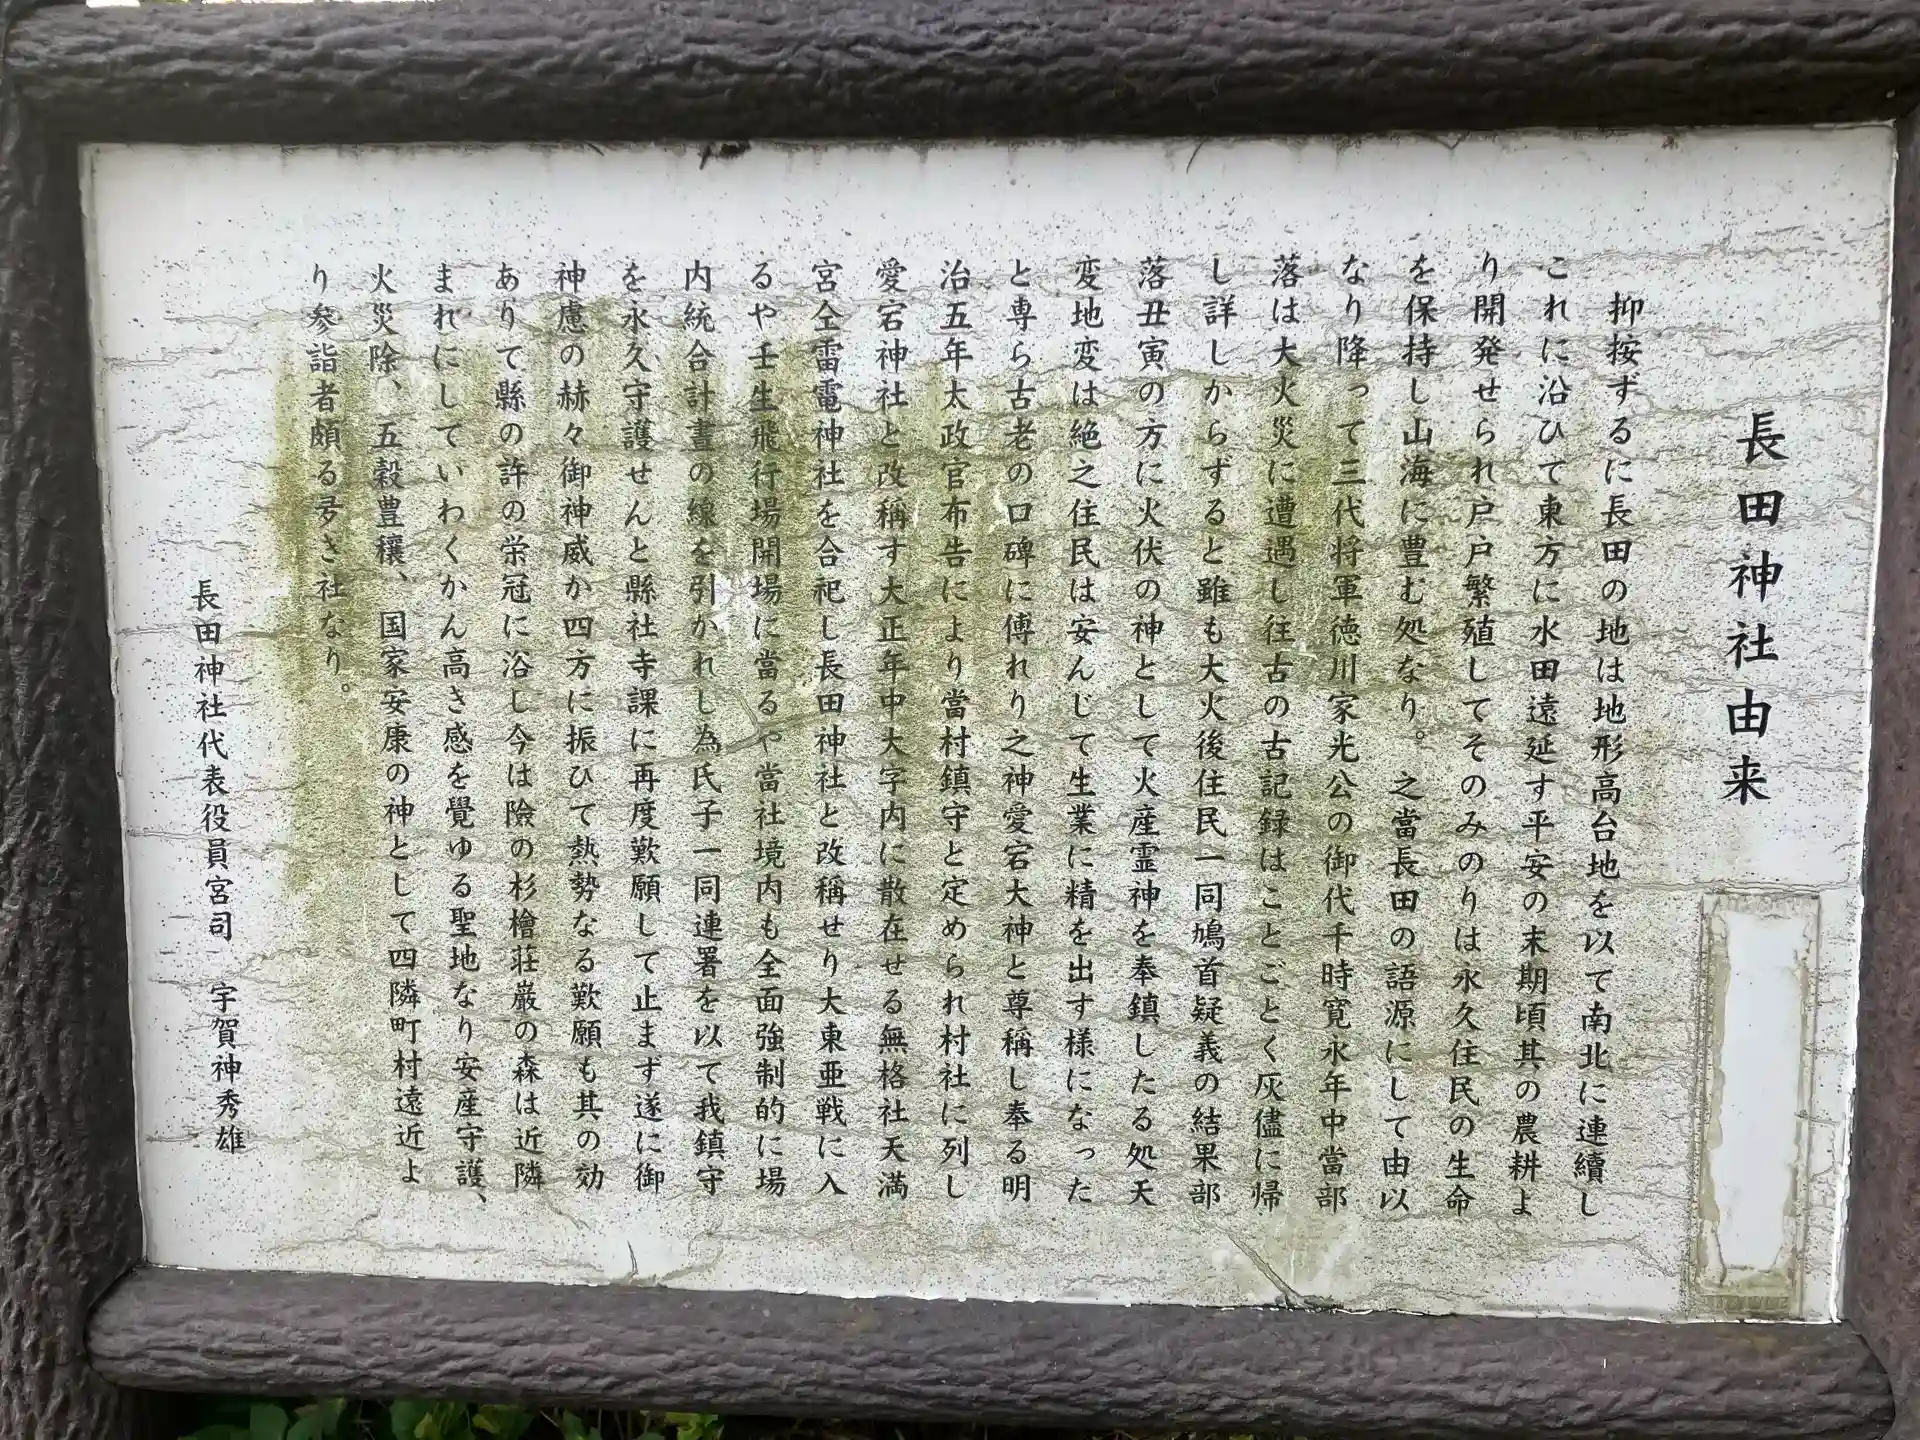 長田神社由来
抑按ずるに長田の地は地形高台地を以て南北に連續し
これに沿ひて東方に水田遠延す平安の末期頃其の農耕よ
り開発せられ戸戸繁殖してそのみのりは永久住民の生命
を保持し山海に豊む処なり。之當長田の語源にして由以
なり降って三代将軍徳川家光公の御代千時寛永年中當部
落は大火災に遭遇し往古の古記録はことごとく灰儘に帰
し詳しからずると雖も大火後住民一同鳩首疑義の結果部
落丑寅の方に火伏の神として火産霊神を奉鎮したる処天
変地変は絶之住民は安んじて生業に精を出す様になった
と専ら古老の口碑に傅れり之神愛宕大神と尊稱し奉る明
治五年太政官布告により當村鎮守と定められ村社に列し
愛宕神社と改稱す大正年中大字内に散在せる無格社天満
宮仝雷電神社を合祀し長田神社と改稱せり大東亜戦に入
るや壬生飛行場開場に當るや當社境内も全面強制的に場
内統合計畫の線を引かれし為氏子一同連署を以て我鎮守
を永久守護せんと縣社寺課に再度歎願して止まず遂に御
神慮の赫々御神威か四方に振ひて熱勢なる歎願も其の効
ありて縣の許の栄冠に浴し今は險の杉檜荘厳の森は近隣
まれにしていわくかん高き感を覺ゆる聖地なり安産守護、
火災除、五穀豊穰、国家安康の神として四隣町村遠近よ
り参詣者頗る多き社なり。
長田神社代表役員宮司 宇賀神秀雄